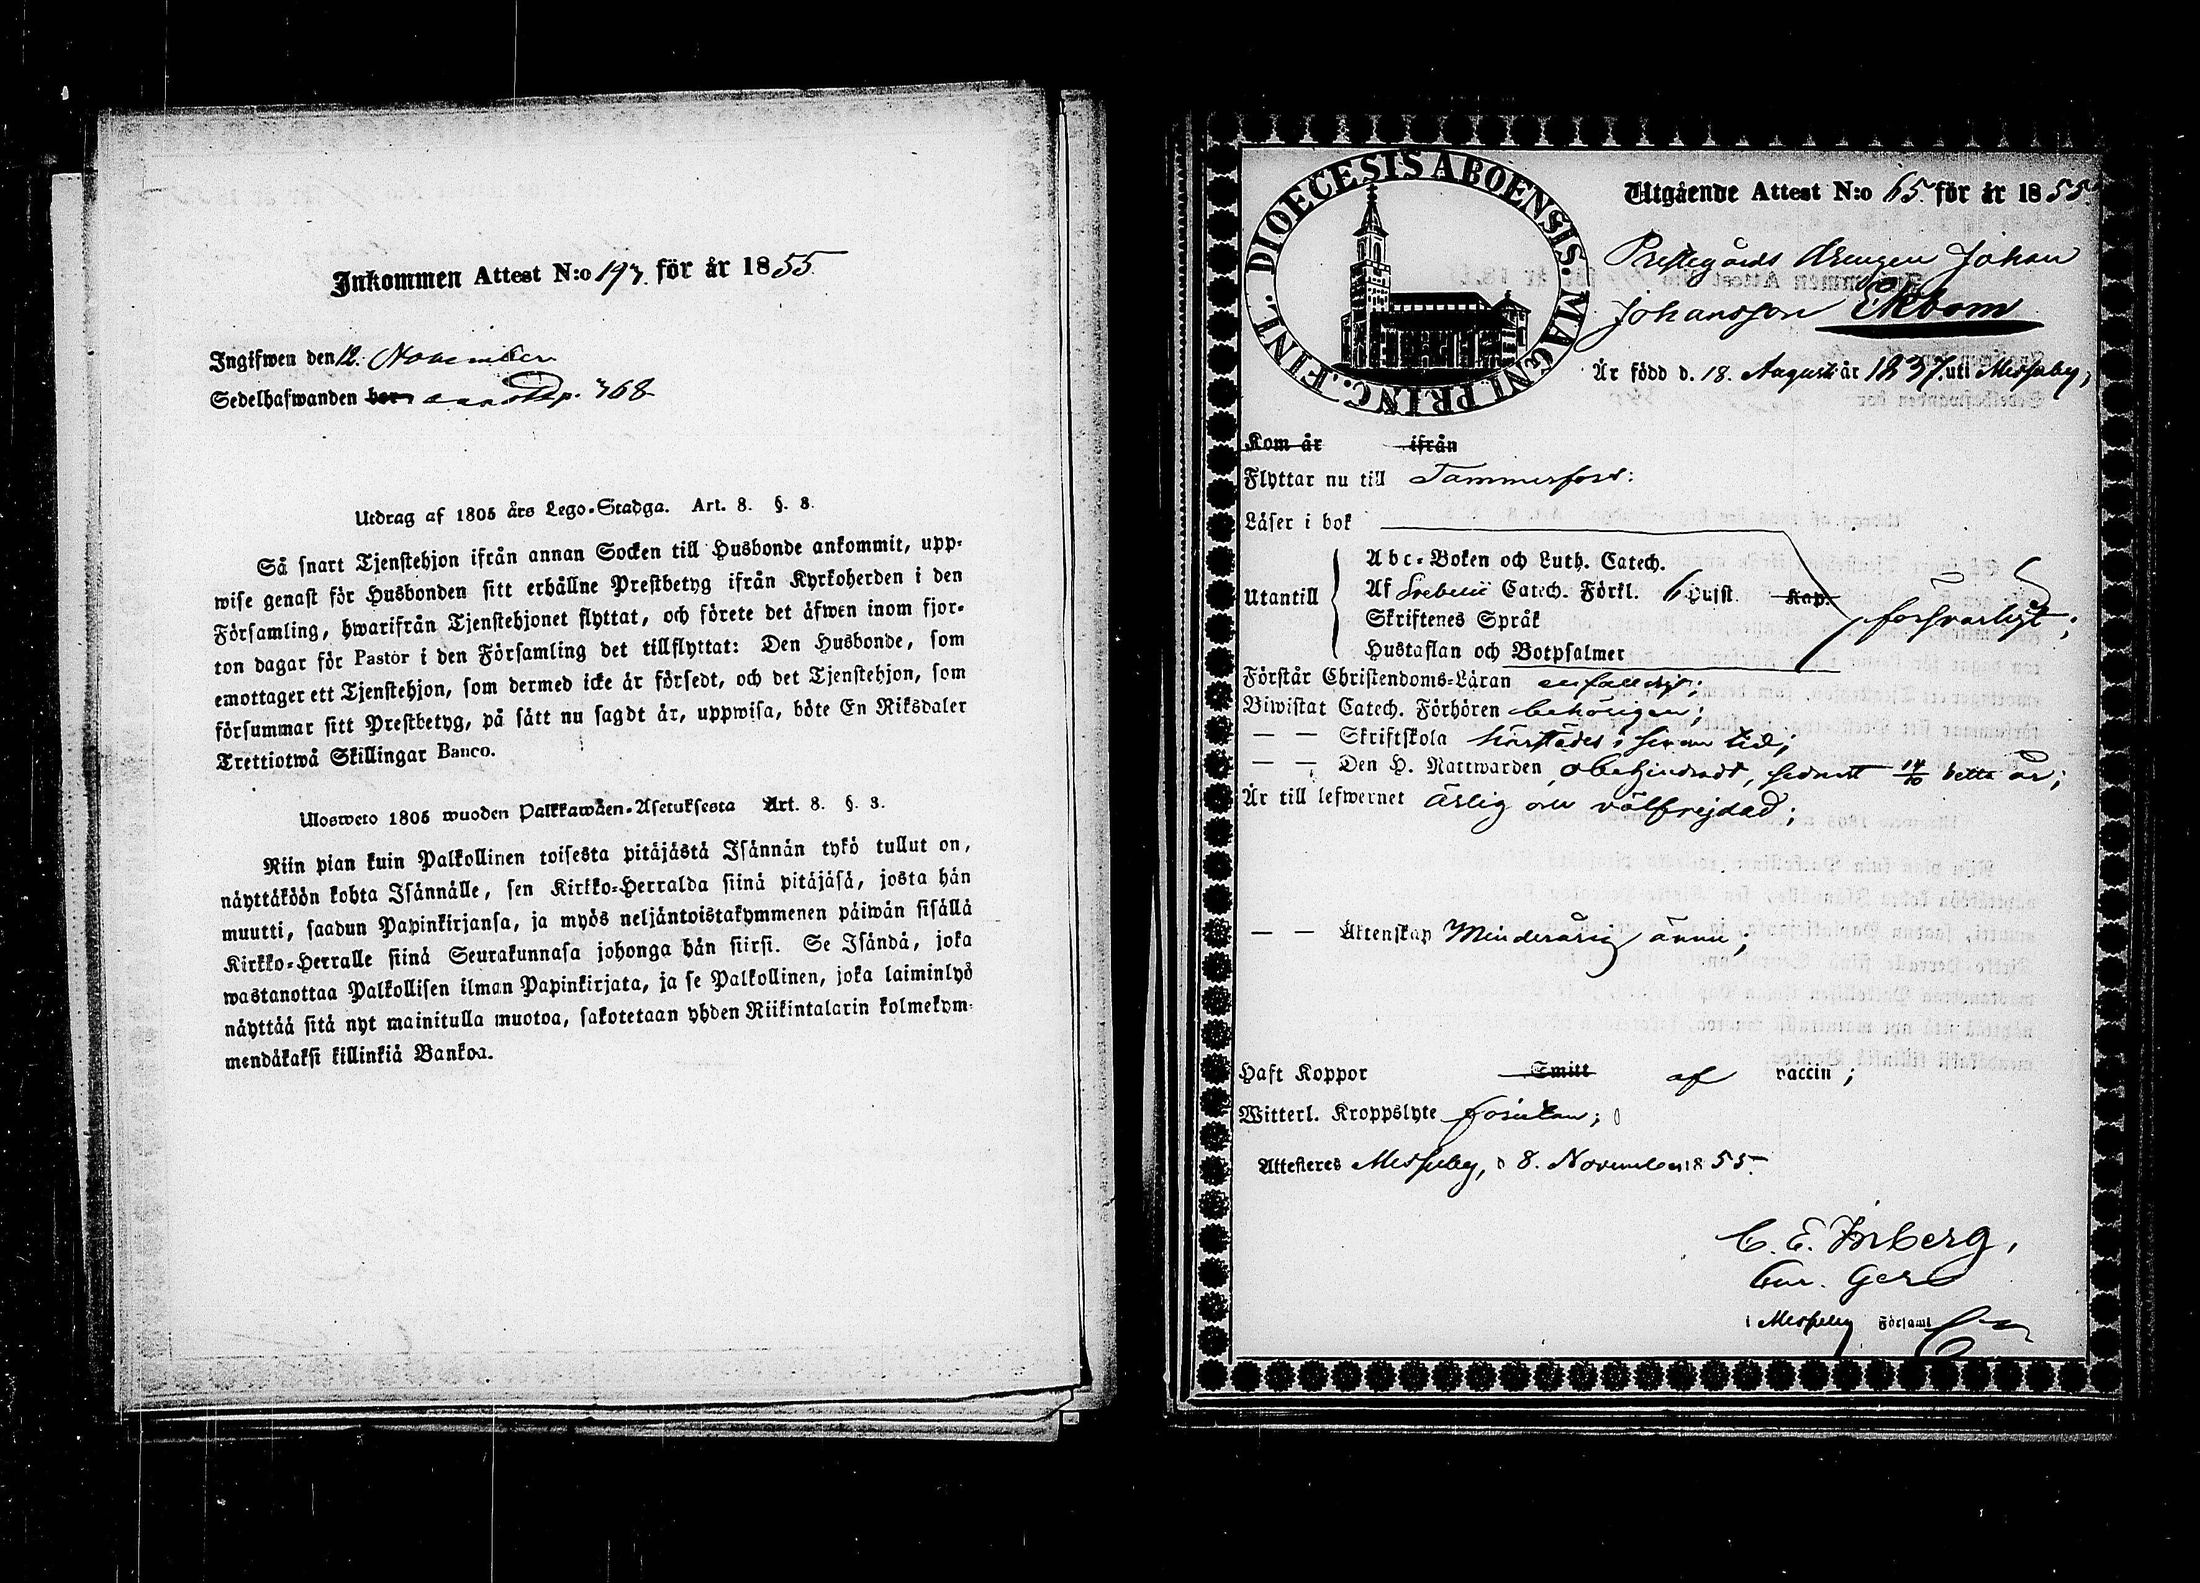 Inkommen Attest N:o 193. för år 1855.
Ingifwen den 12. November
Sedelhafwanden bor p. 368
Utdrag af 1805 års Lego-Stadga. Art. 8. §. 3.
Så snart Tjenstehjon ifrån annan Socken till Husbonde ankommit, upp-
wise genast för Husbonden sitt erhållne Prestbetyg ifrån Kyrkoherden i den
Församling, hwarifrån Tjenstehjonet flyttat, och förete det äfwen inom fjor-
ton dagar för Pastor i den Församling det tillflyttat: Den Husbonde, som
emottager ett Tjenstehjon, som dermed icke är försedt, och det Tjenstehjon, som
försummar sitt Prestbetyg, på sätt nu sagdt är, uppwisa, böte En Riksdaler
Trettiotwå Skillingar Banco.
Ulosweto 1805 wuoden Palkkawäen-Asetuksesta Art. 8. §. 3.
Niin pian kuin Palkollinen toisesta pitäjästä Isännän tykö tullut on,
näyttäköön kohta Isännälle, sen Kirkko-Herralda siinä pitäjäsä, josta hän
muutti, saadun Papinkirjansa, ja myös neljäntoistakymmenen päiwän sisällä
Kirkko-Herralle siinä Seurakunnasa johonga hän siirsi. Se Isändä, joka
wastanottaa Palkollisen ilman Papinkirjata, ja se Palkollinen, joka laiminlyö
näyttää sitä nyt mainitulla muotoa, sakotetaan yhden Riikintalarin kolmekym-
mendäkaksi killinkiä Bankoa.
DIOECESIS ABOENSIS. MAGNI PRINC. FINL.
Utgående Attest N:o 65. för år 1855.
Prestegårds Drengen Johan
Johansson Ekbom
Är född d. 18. Augusti år 1837. uti Messuby;
Kom år ifrån
Flyttar nu till Tammerfors:
Läser i bok
Utantill
Abc-Boken och Luth. Catech.
Af Svebelii Catech. Förkl. 6 Quist. Kap.
Skriftenes Språk
Hustaflan och Botpsalmer
försvarligt;
Förstår Christendoms-Läran enfaldigt;
Biwistat Catech. Förhören behörigen;
— — Skriftskola härstädes i sinom tid;
— — Den H. Nattwarden obehindradt, sednast 14/10 detta år;
Är till lefwernet ärlig och välfrejdad;
— — Äktenskap Minderårig ännu;
Haft Koppor Smitt af vaccin;
Witterl. Kroppslyte förutan;
Attesteres Messuby, d 8. November 1855.
C. E. Inberg,
Cur. Ger
i Messuby Församl